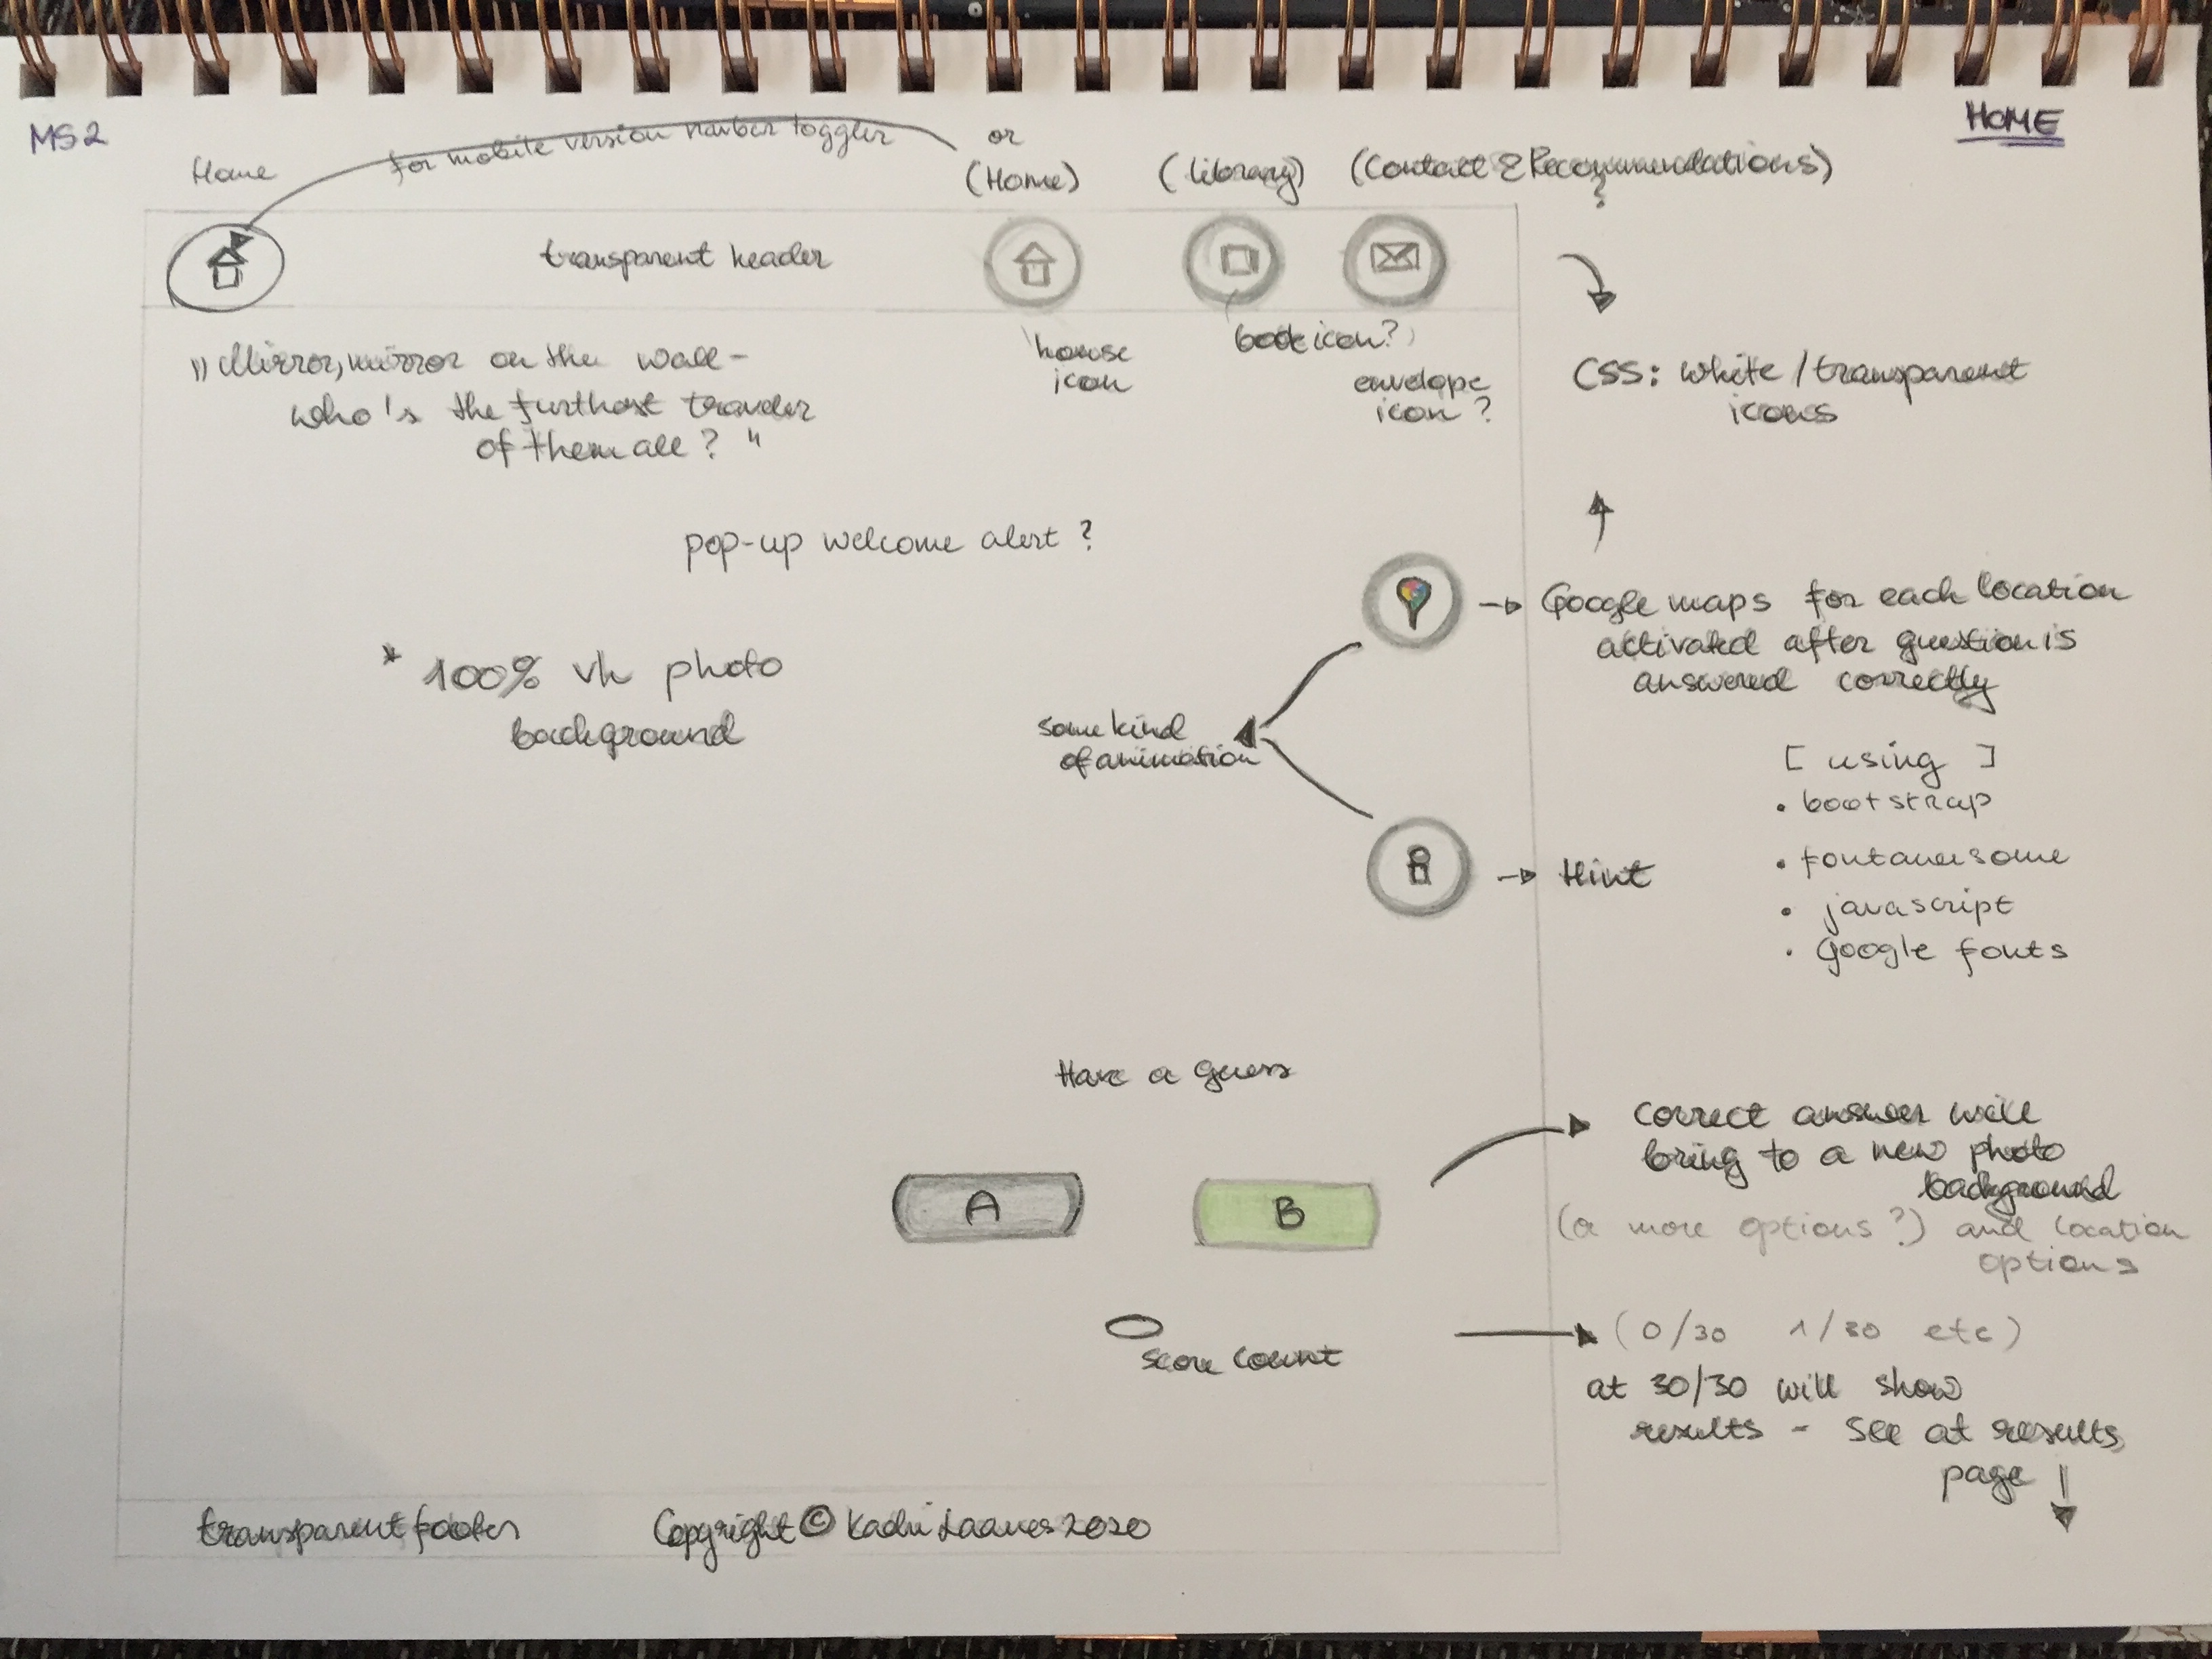 MS2
HOME
Home
for mobile version navbar toggler
or
(Home)
(library)
(Contact & Recommendations)
?
transparent header
house
icon
book icon?
envelope
icon?
"Mirror, mirror on the wall -
who's the furthest traveler
of them all? "
CSS: white / transparent
icons
pop-up welcome alert?
* 100% vh photo
background
some kind
of animation
Google maps for each location
activated after question is
answered correctly
[ using ]
• bootstrap
• fontawesome
• javascript
• google fonts
i
Hint
Have a guess
A
B
correct answer will
bring to a new photo
background
(or more options?) and location
options
score count
(0/30 1/30 etc)
at 30/30 will show
results - see at results
page
transparent footer
Copyright © Kadri Laanes 2020